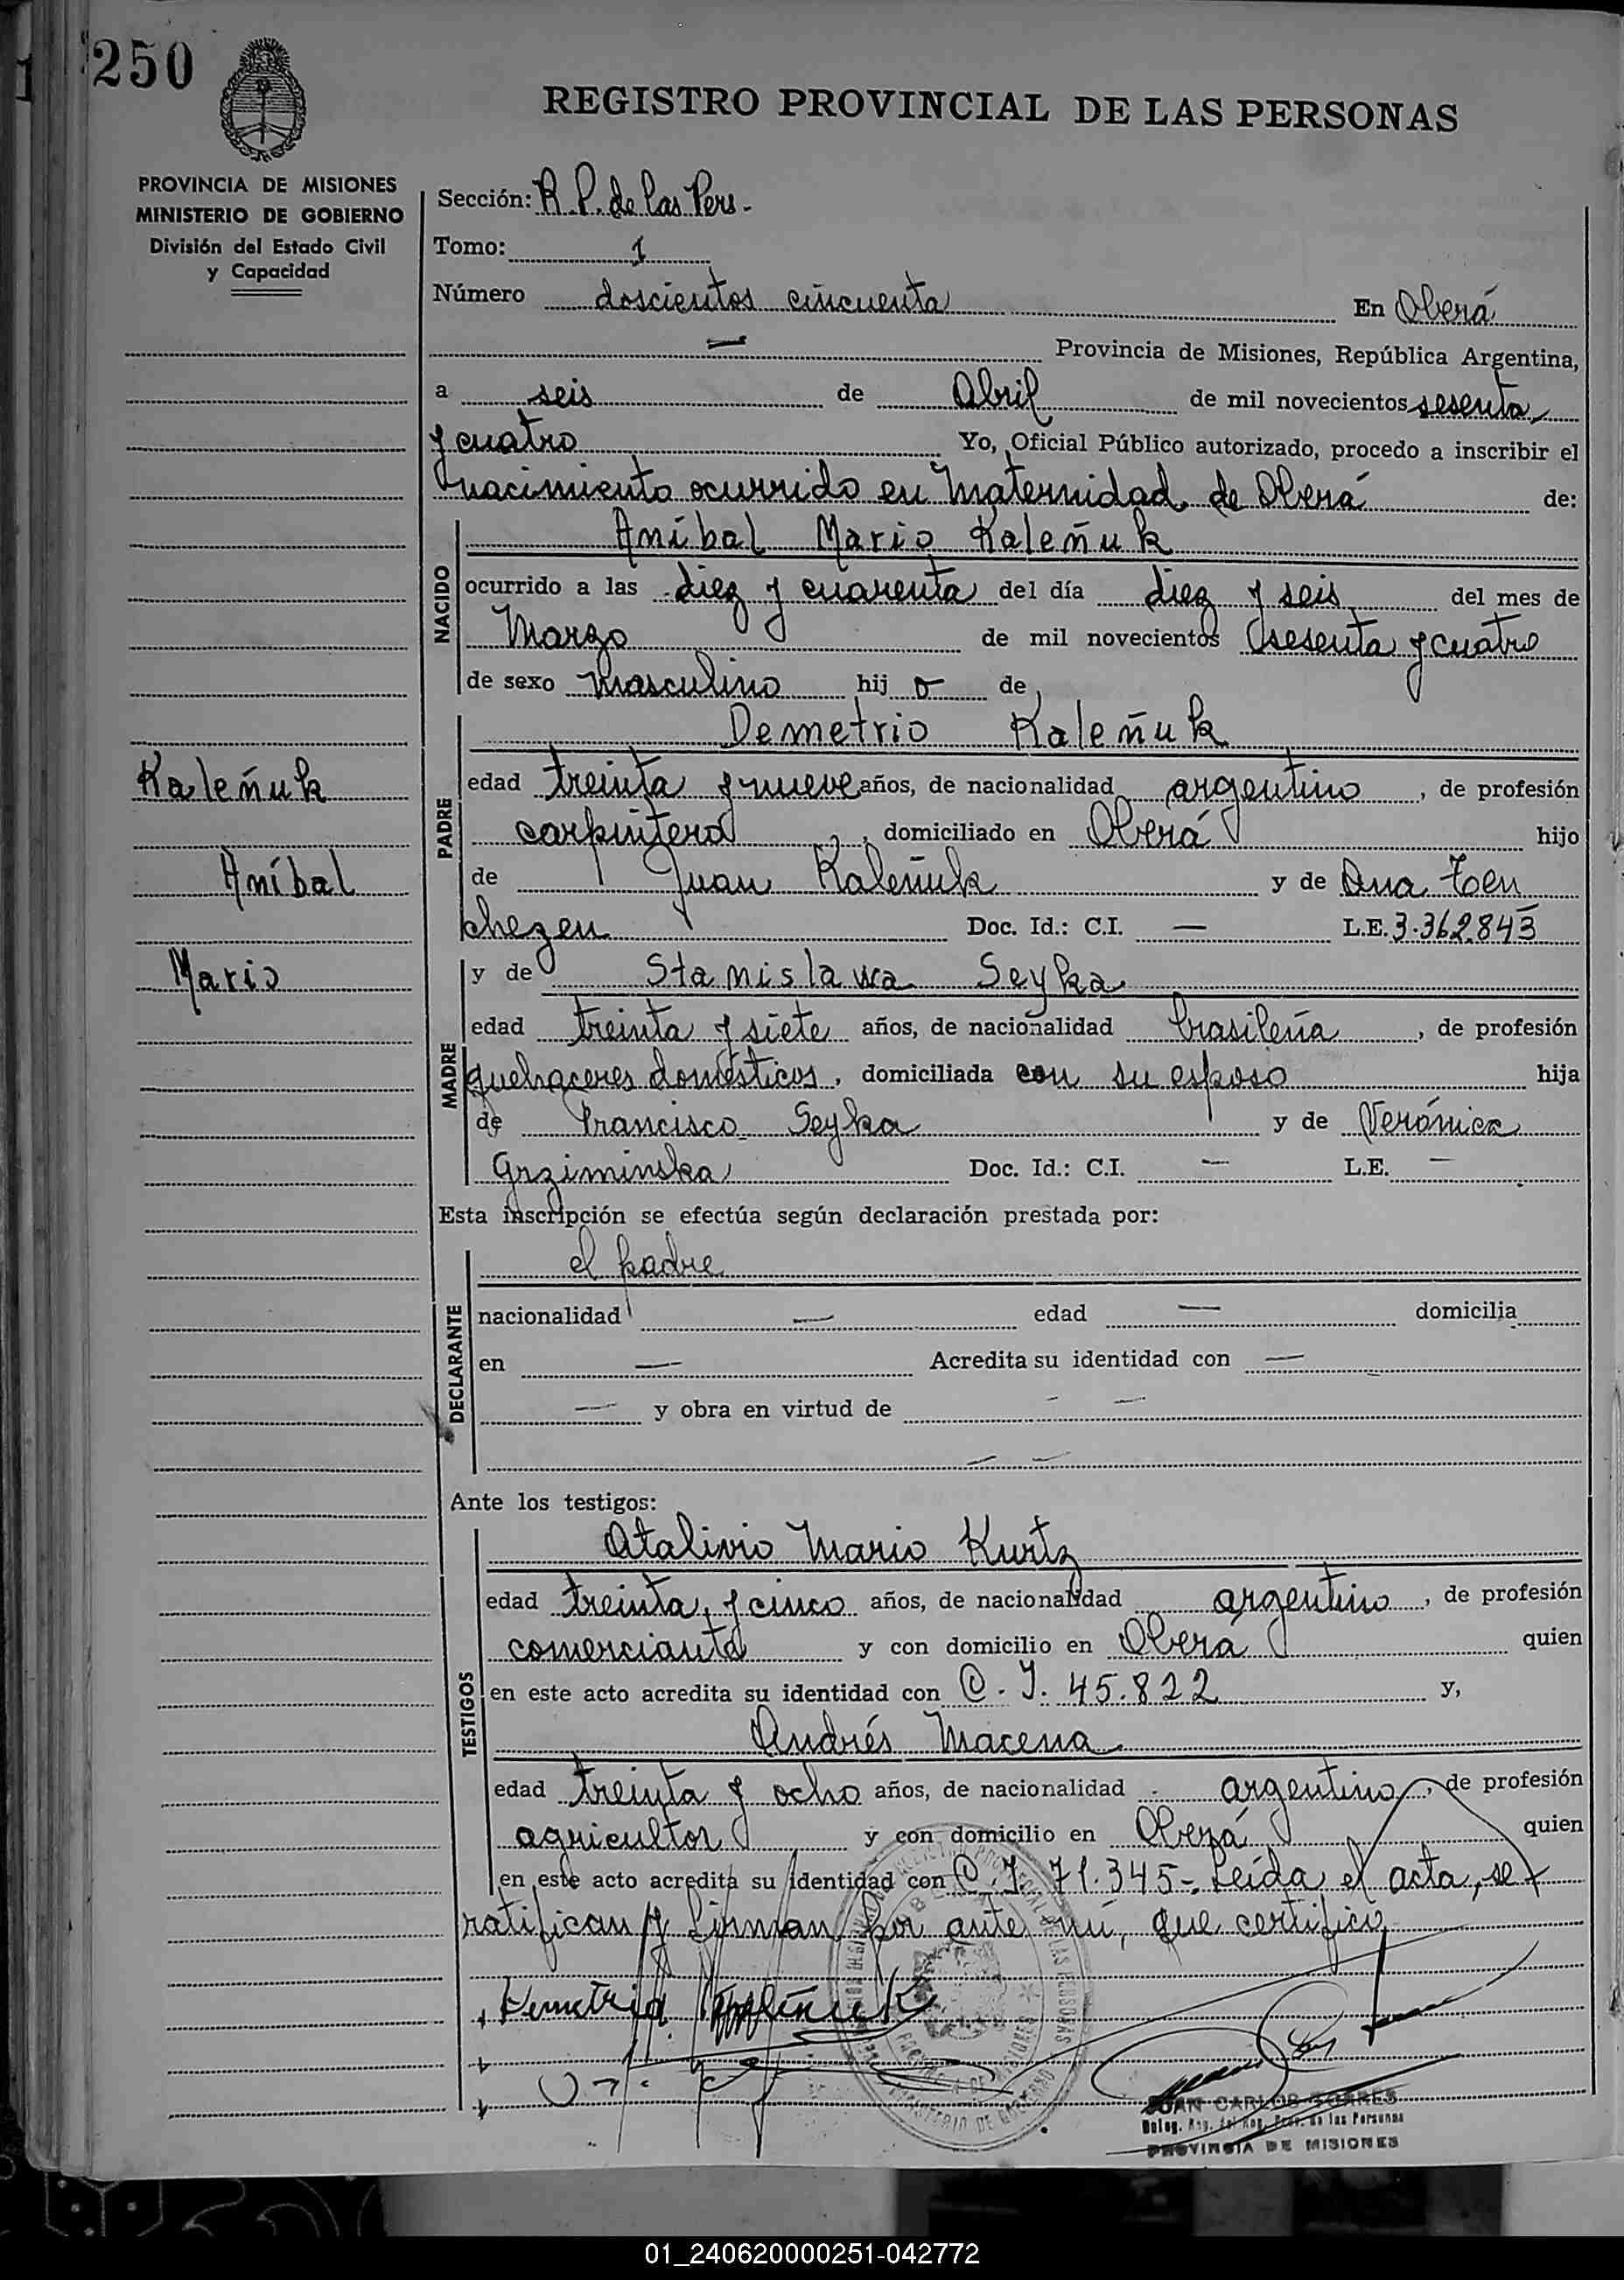 250
REGISTRO PROVINCIAL DE LAS PERSONAS
PROVINCIA DE MISIONES
MINISTERIO DE GOBIERNO
División del Estado Civil
y Capacidad
Sección: R. P. de las Pers.
Tomo: 1
Número doscientos cincuenta En Oberá
— Provincia de Misiones, República Argentina,
a seis de Abril de mil novecientos sesenta
y cuatro Yo, Oficial Público autorizado, procedo a inscribir el
nacimiento ocurrido en Maternidad de Oberá de:
NACIDO
Aníbal Mario Kaleñuk
ocurrido a las diez y cuarenta del día diez y seis del mes de
Marzo de mil novecientos sesenta y cuatro
de sexo masculino hij o de
PADRE
Demetrio Kaleñuk
edad treinta y nueve años, de nacionalidad argentino, de profesión
carpintero, domiciliado en Oberá hijo
de Juan Kaleñuk y de Ana Ten
chezen Doc. Id.: C.I. — L.E. 3.362.843
Kaleñuk
Aníbal
Mario
MADRE
y de Stanislawa Seyka
edad treinta y siete años, de nacionalidad brasileña, de profesión
quehaceres domésticos, domiciliada con su esposo hija
de Francisco Seyka y de Verónica
Grziminska Doc. Id.: C.I. — L.E. —
Esta inscripción se efectúa según declaración prestada por:
DECLARANTE
el padre
nacionalidad — edad — domicilia
en — Acredita su identidad con —
— y obra en virtud de — —
— —
Ante los testigos:
TESTIGOS
Atalivio Mario Kurtz
edad treinta y cinco años, de nacionalidad argentino, de profesión
comerciante y con domicilio en Oberá quien
en este acto acredita su identidad con C. I. 45.822 y,
Andrés Macena
edad treinta y ocho años, de nacionalidad argentino, de profesión
agricultor y con domicilio en Oberá quien
en este acto acredita su identidad con C. I. 71.345-. Leída el acta, se
ratifican y firman por ante mí, que certifico
Demetrio Kaleñuk
JUAN CARLOS TORRES
Deleg. Reg. del Reg. Prov. de las Personas
PROVINCIA DE MISIONES
01_240620000251-042772